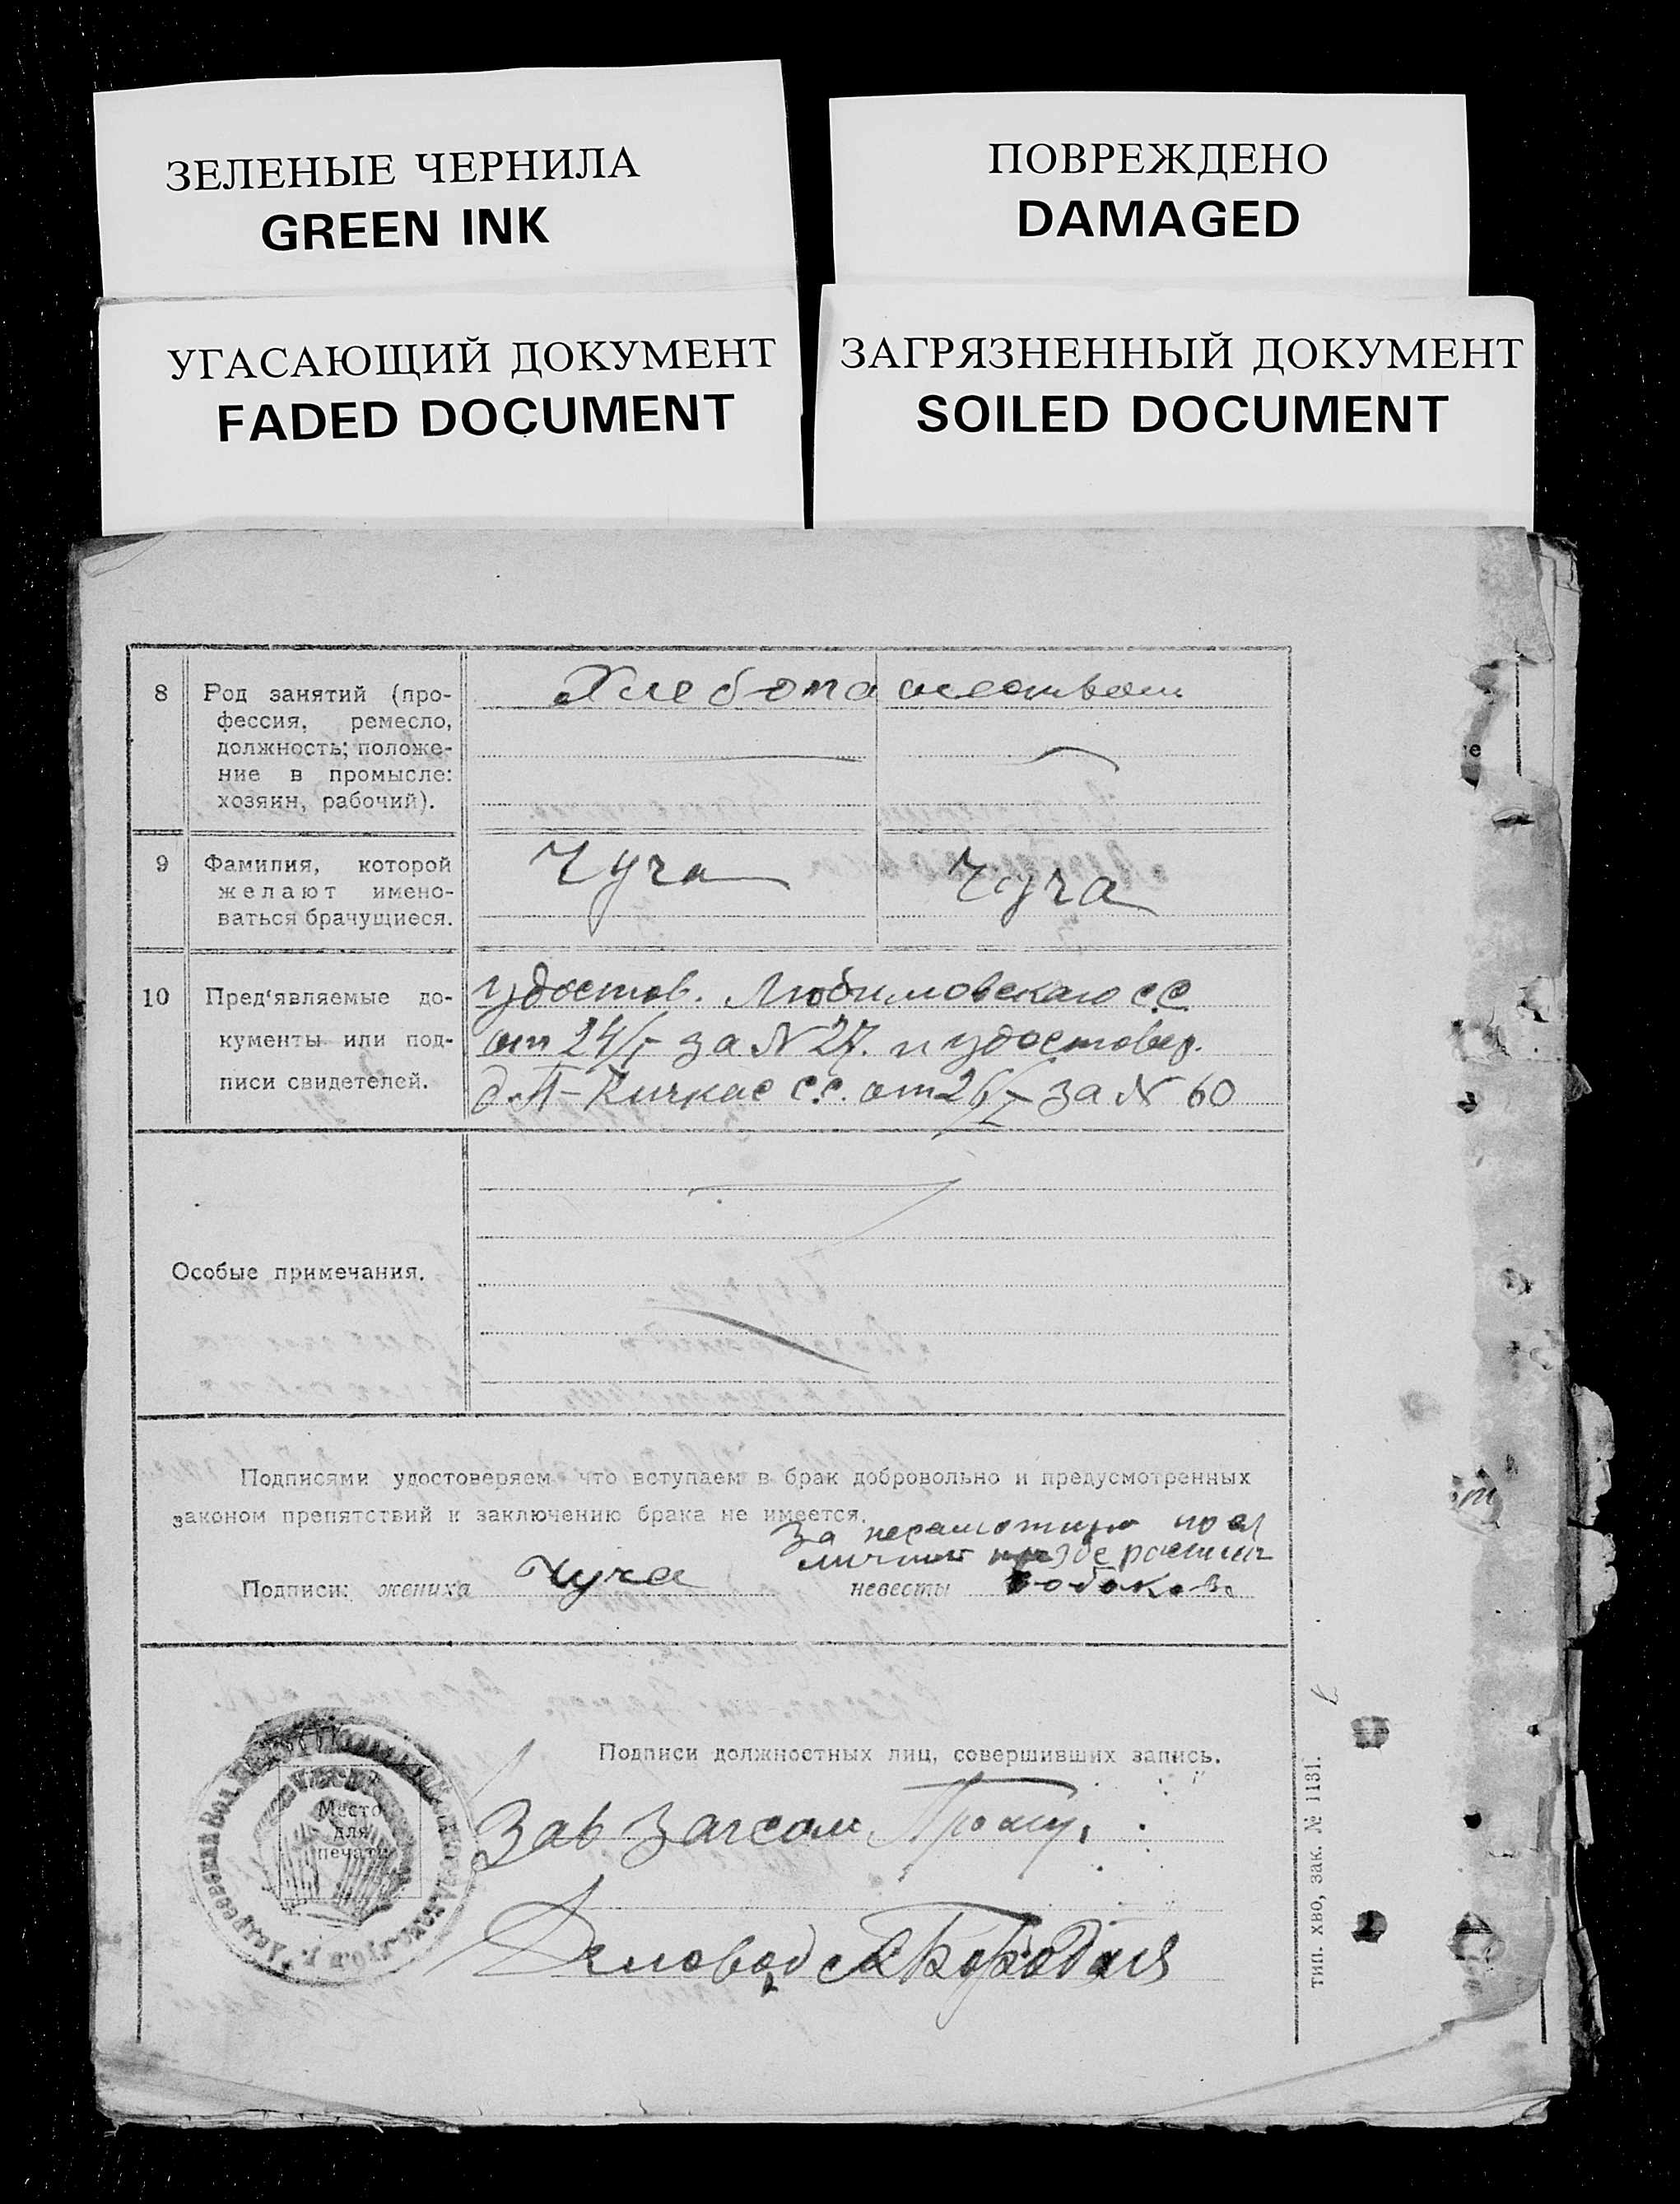 ЗЕЛЕНЫЕ ЧЕРНИЛА
GREEN INK
ПОВРЕЖДЕНО
DAMAGED
УГАСАЮЩИЙ ДОКУМЕНТ
FADED DOCUMENT
ЗАГРЯЗНЕННЫЙ ДОКУМЕНТ
SOILED DOCUMENT
8 Род занятий (про-
фессия, ремесло,
должность; положе-
ние в промысле:
хозяин, рабочий).
Хлебопашеством
9 Фамилия, которой
желают имено-
ваться брачущиеся.
Чуча
Чуча
10 Пред'являемые до-
кументы или под-
писи свидетелей.
удостов. Любимовскаго с.с.
от 24/I- за N 27. и удостовер.
д. П-Кичкас с.с. от 26/I- за N 60
Особые примечания.
Подписями удостоверяем что вступаем в брак добровольно и предусмотренных
законом препятствий к заключению брака не имеется.
За неграмотную по ея
личной
Подписи: жениха Чуча невесты
Подписи должностных лиц, совершивших запись.
Место
для
печати
Зав Загсом
Деловод
тип. хво, зак. № 1131.